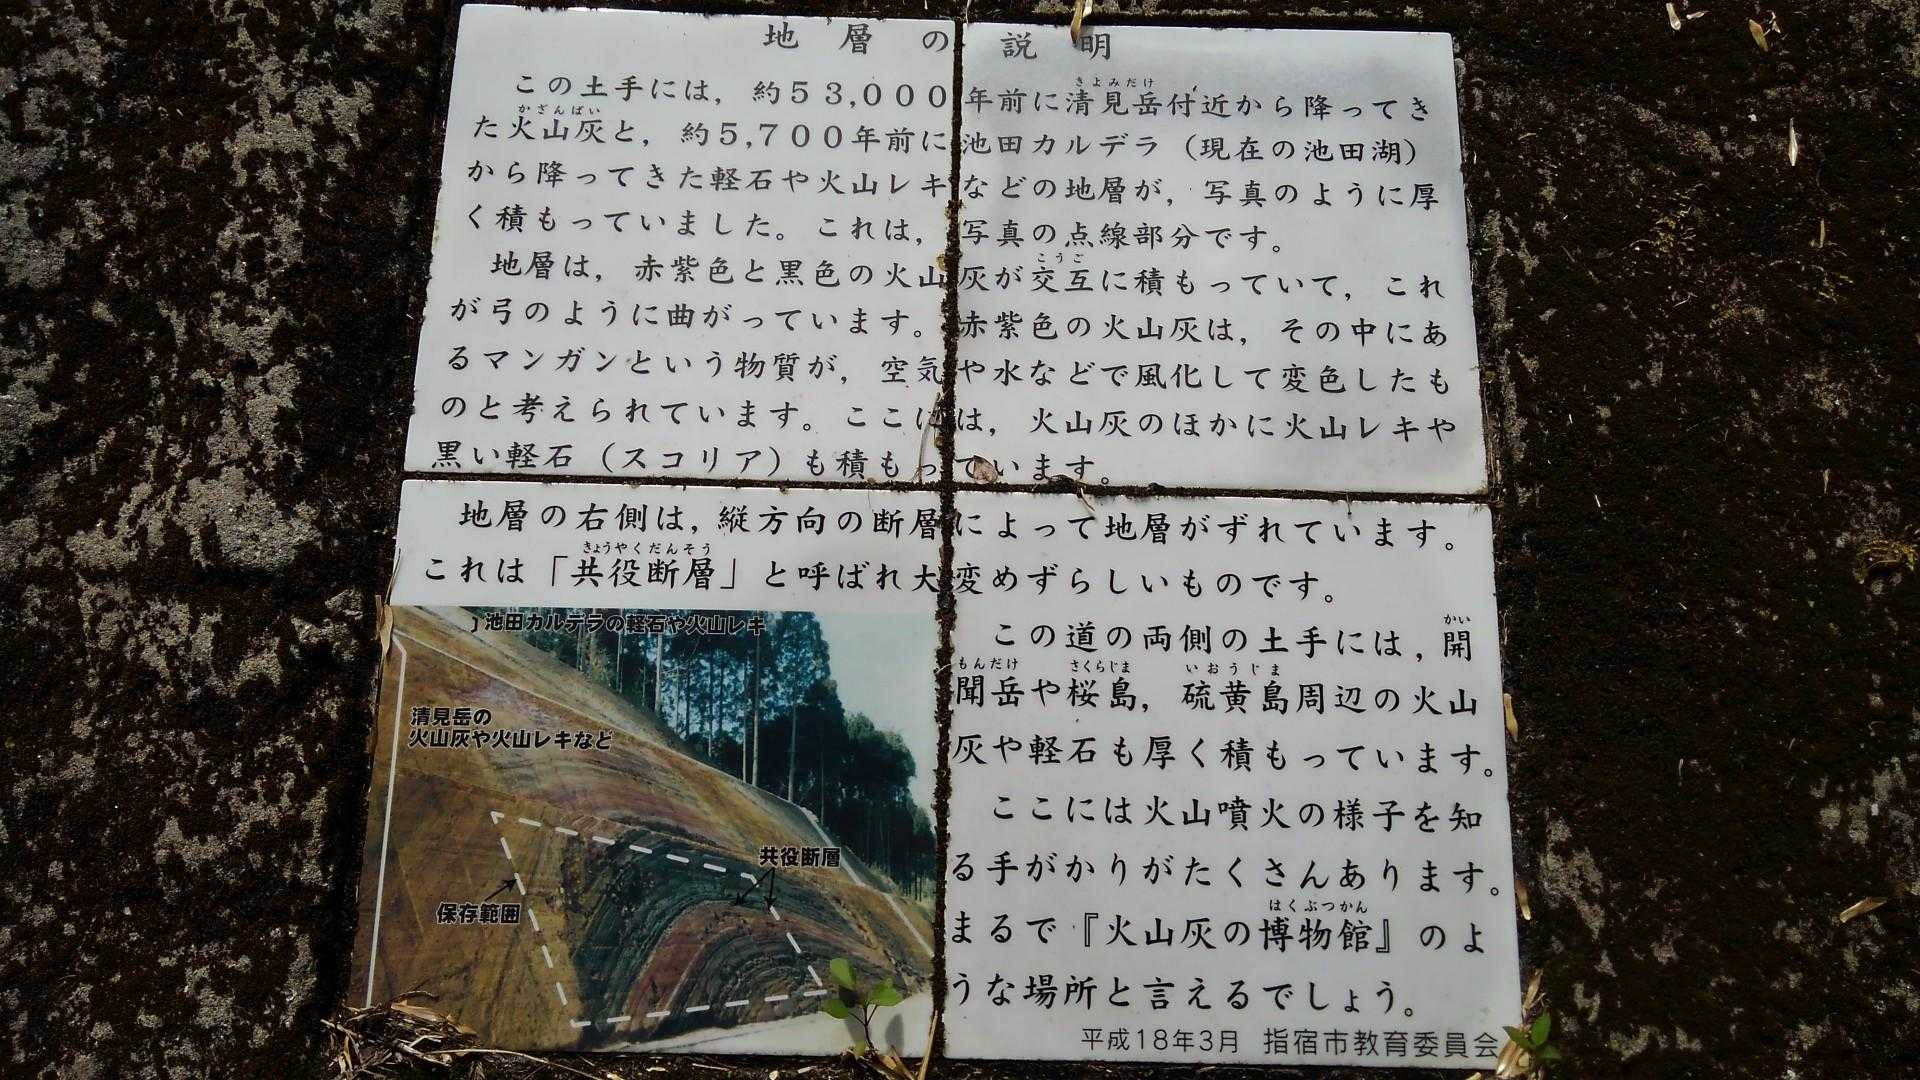 地層の説明
この土手には，約５３,０００年前に清見岳付近から降ってき
きよみだけ
た火山灰と，約５,７００年前に池田カルデラ（現在の池田湖）
かざんばい
から降ってきた軽石や火山レキなどの地層が，写真のように厚
く積もっていました。これは，写真の点線部分です。
地層は，赤紫色と黒色の火山灰が交互に積もっていて，これ
こうご
が弓のように曲がっています。赤紫色の火山灰は，その中にあ
るマンガンという物質が，空気や水などで風化して変色したも
のと考えられています。ここには，火山灰のほかに火山レキや
黒い軽石（スコリア）も積もっています。
地層の右側は，縦方向の断層によって地層がずれています。
きょうやくだんそう
これは「共役断層」と呼ばれ大変めずらしいものです。
池田カルデラの軽石や火山レキ
清見岳の
火山灰や火山レキなど
共役断層
保存範囲
かい
この道の両側の土手には，開
もんだけ さくらじま いおうじま
聞岳や桜島，硫黄島周辺の火山
灰や軽石も厚く積もっています。
ここには火山噴火の様子を知
る手がかりがたくさんあります。
はくぶつかん
まるで『火山灰の博物館』のよ
うな場所と言えるでしょう。
平成18年3月 指宿市教育委員会